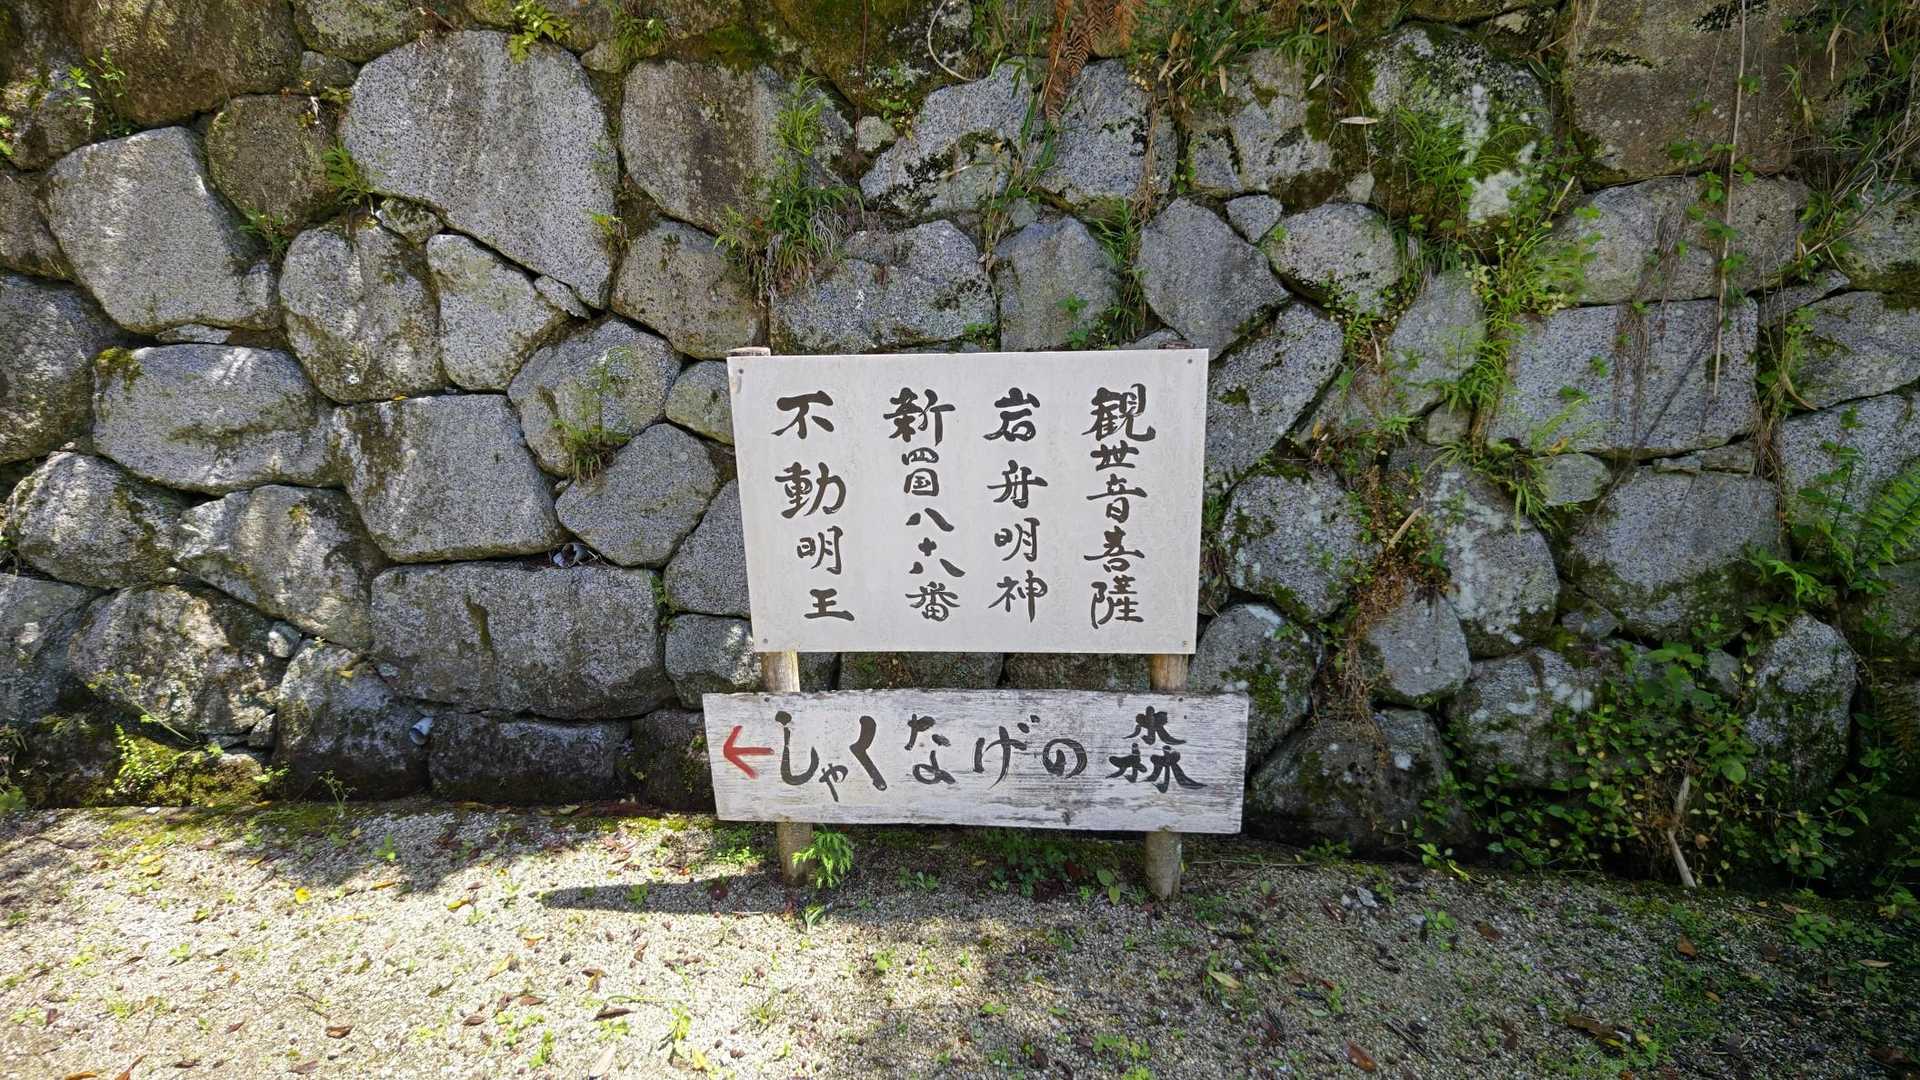 観世音菩薩
岩舟明神
新四国八十八番
不動明王
←しゃくなげの森